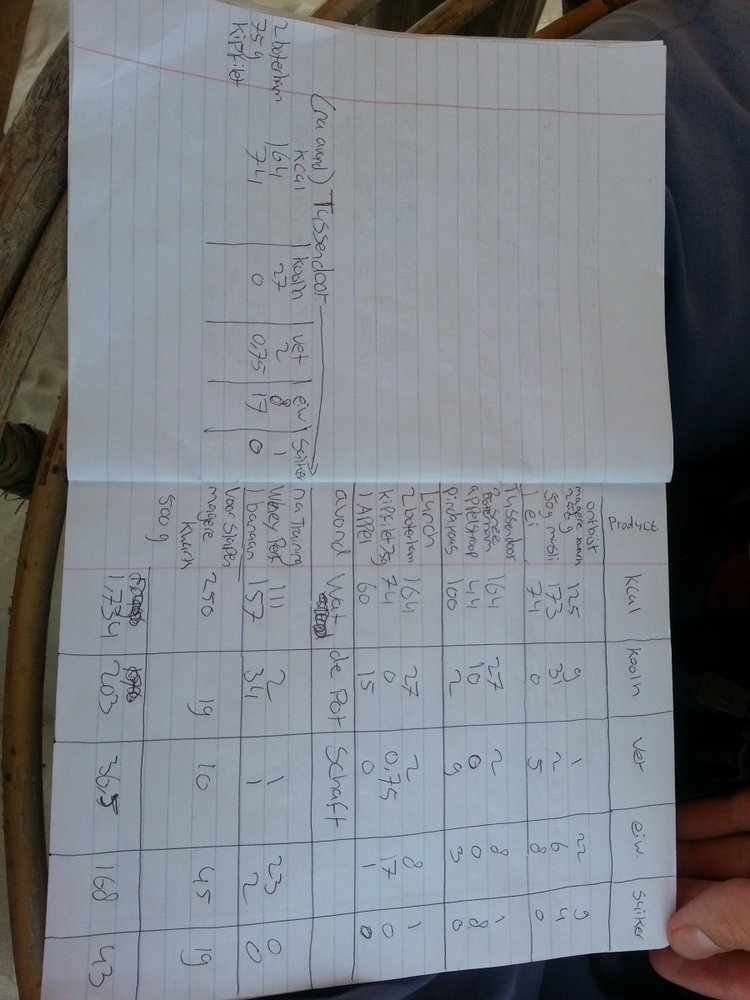 (na avond) Tussendoor
Kcal kooln vet eiw Suiker
2 boterham 164 27 2 8 1
75 g 74 0 0,75 17 0
Kipfilet
Product Kcal Kooln Vet eiw. Suiker
ontbijt
magere kwark 125 9 1 22 9
250 g
50g musli 173 31 2 6 4
1 ei 74 0 5 8 0
Tussendoor
2 snee
boterham 164 27 2 8 1
appelstroop 44 10 0 0 8
pindakaas 100 2 9 3 0
Lunch
2 boterham 164 27 2 8 1
Kipfilet 75g 74 0 0,75 17 0
1 Appel 60 15 0 1 0
avond Wat de Pot Schaft
na Training
Whey Perf 111 2 1 23 0
1 banaan 157 34 1 2 0
Voor Slapen
magere 250 19 10 45 19
kwark
500 g
1734 203 36,5 168 43